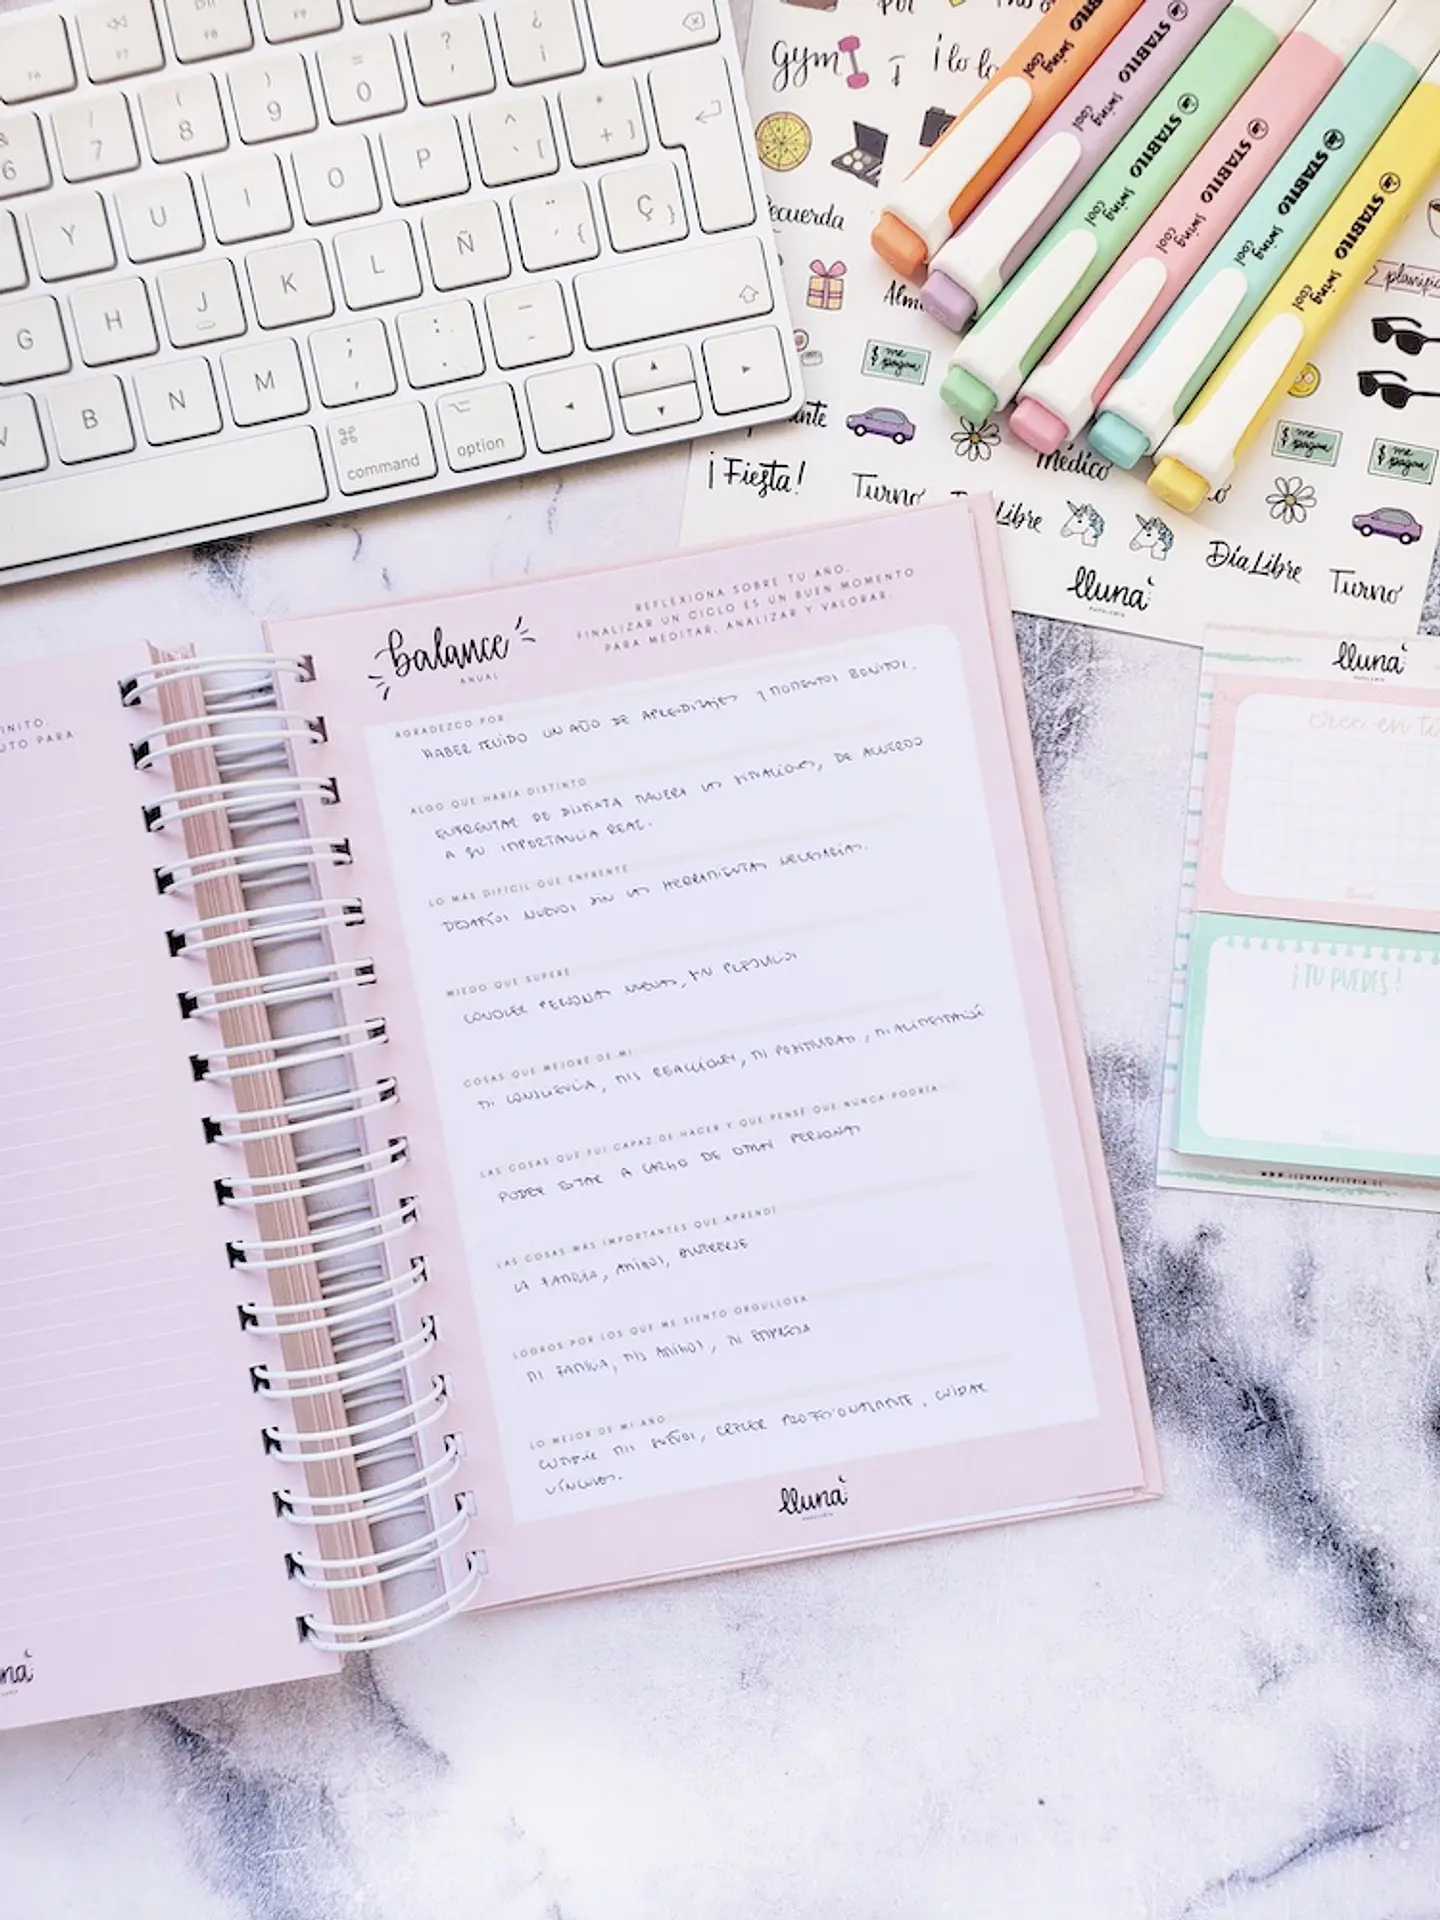 F6
F7
F8
F9
¿
?
¡
'
/
(
)
=
6
7
8
9
0
Y
U
I
O
P
^
` [
*
+ ]
G
H
J
K
L
Ñ
¨ {
Ç }
B
N
M
;
,
:
.
–
-
command
option
gym
¡lo lo
ecuerda
Alm
$ me pagan
¡Fiesta!
Turno
Médico
Libre
Día Libre
Turno
$ me pagan
$ me pagan
planific
lluna
PAPELERÍA
STABILO swing cool
STABILO swing cool
STABILO swing cool
STABILO swing cool
STABILO swing cool
STABILO swing cool
INITO.
UTO PARA
balance
ANUAL
REFLEXIONA SOBRE TU AÑO.
FINALIZAR UN CICLO ES UN BUEN MOMENTO
PARA MEDITAR, ANALIZAR Y VALORAR.
AGRADEZCO POR
HABER TENIDO UN AÑO DE APRENDIZAJES Y MOMENTOS BONITOS.
ALGO QUE HARÍA DISTINTO
ENFRENTAR DE DISTINTA MANERA LAS SITUACIONES, DE ACUERDO
A SU IMPORTANCIA REAL.
LO MÁS DIFÍCIL QUE ENFRENTÉ
DESAFÍOS NUEVOS SIN LAS HERRAMIENTAS NECESARIAS.
MIEDO QUE SUPERÉ
CONOCER PERSONAS NUEVAS, SIN PREJUICIOS
COSAS QUE MEJORÉ DE MI
MI CONSCIENCIA, MIS REACCIONES, MI POSITIVIDAD, MI ALIMENTACIÓN
LAS COSAS QUE FUI CAPAZ DE HACER Y QUE PENSÉ QUE NUNCA PODRÍA
PODER ESTAR A CARGO DE OTRAS PERSONAS
LAS COSAS MÁS IMPORTANTES QUE APRENDÍ
LA FAMILIA, AMIGOS, QUERERSE
LOGROS POR LOS QUE ME SIENTO ORGULLOSA
MI FAMILIA, MIS AMIGOS, MI EMPRESA
LO MEJOR DE MI AÑO
CUMPLIR MIS SUEÑOS, CRECER PROFESIONALMENTE, CUIDAR
VÍNCULOS.
lluna
PAPELERÍA
una
lluna
PAPELERÍA
cree en ti
¡TU PUEDES!
WWW.LLUNAPAPELERIA.CL